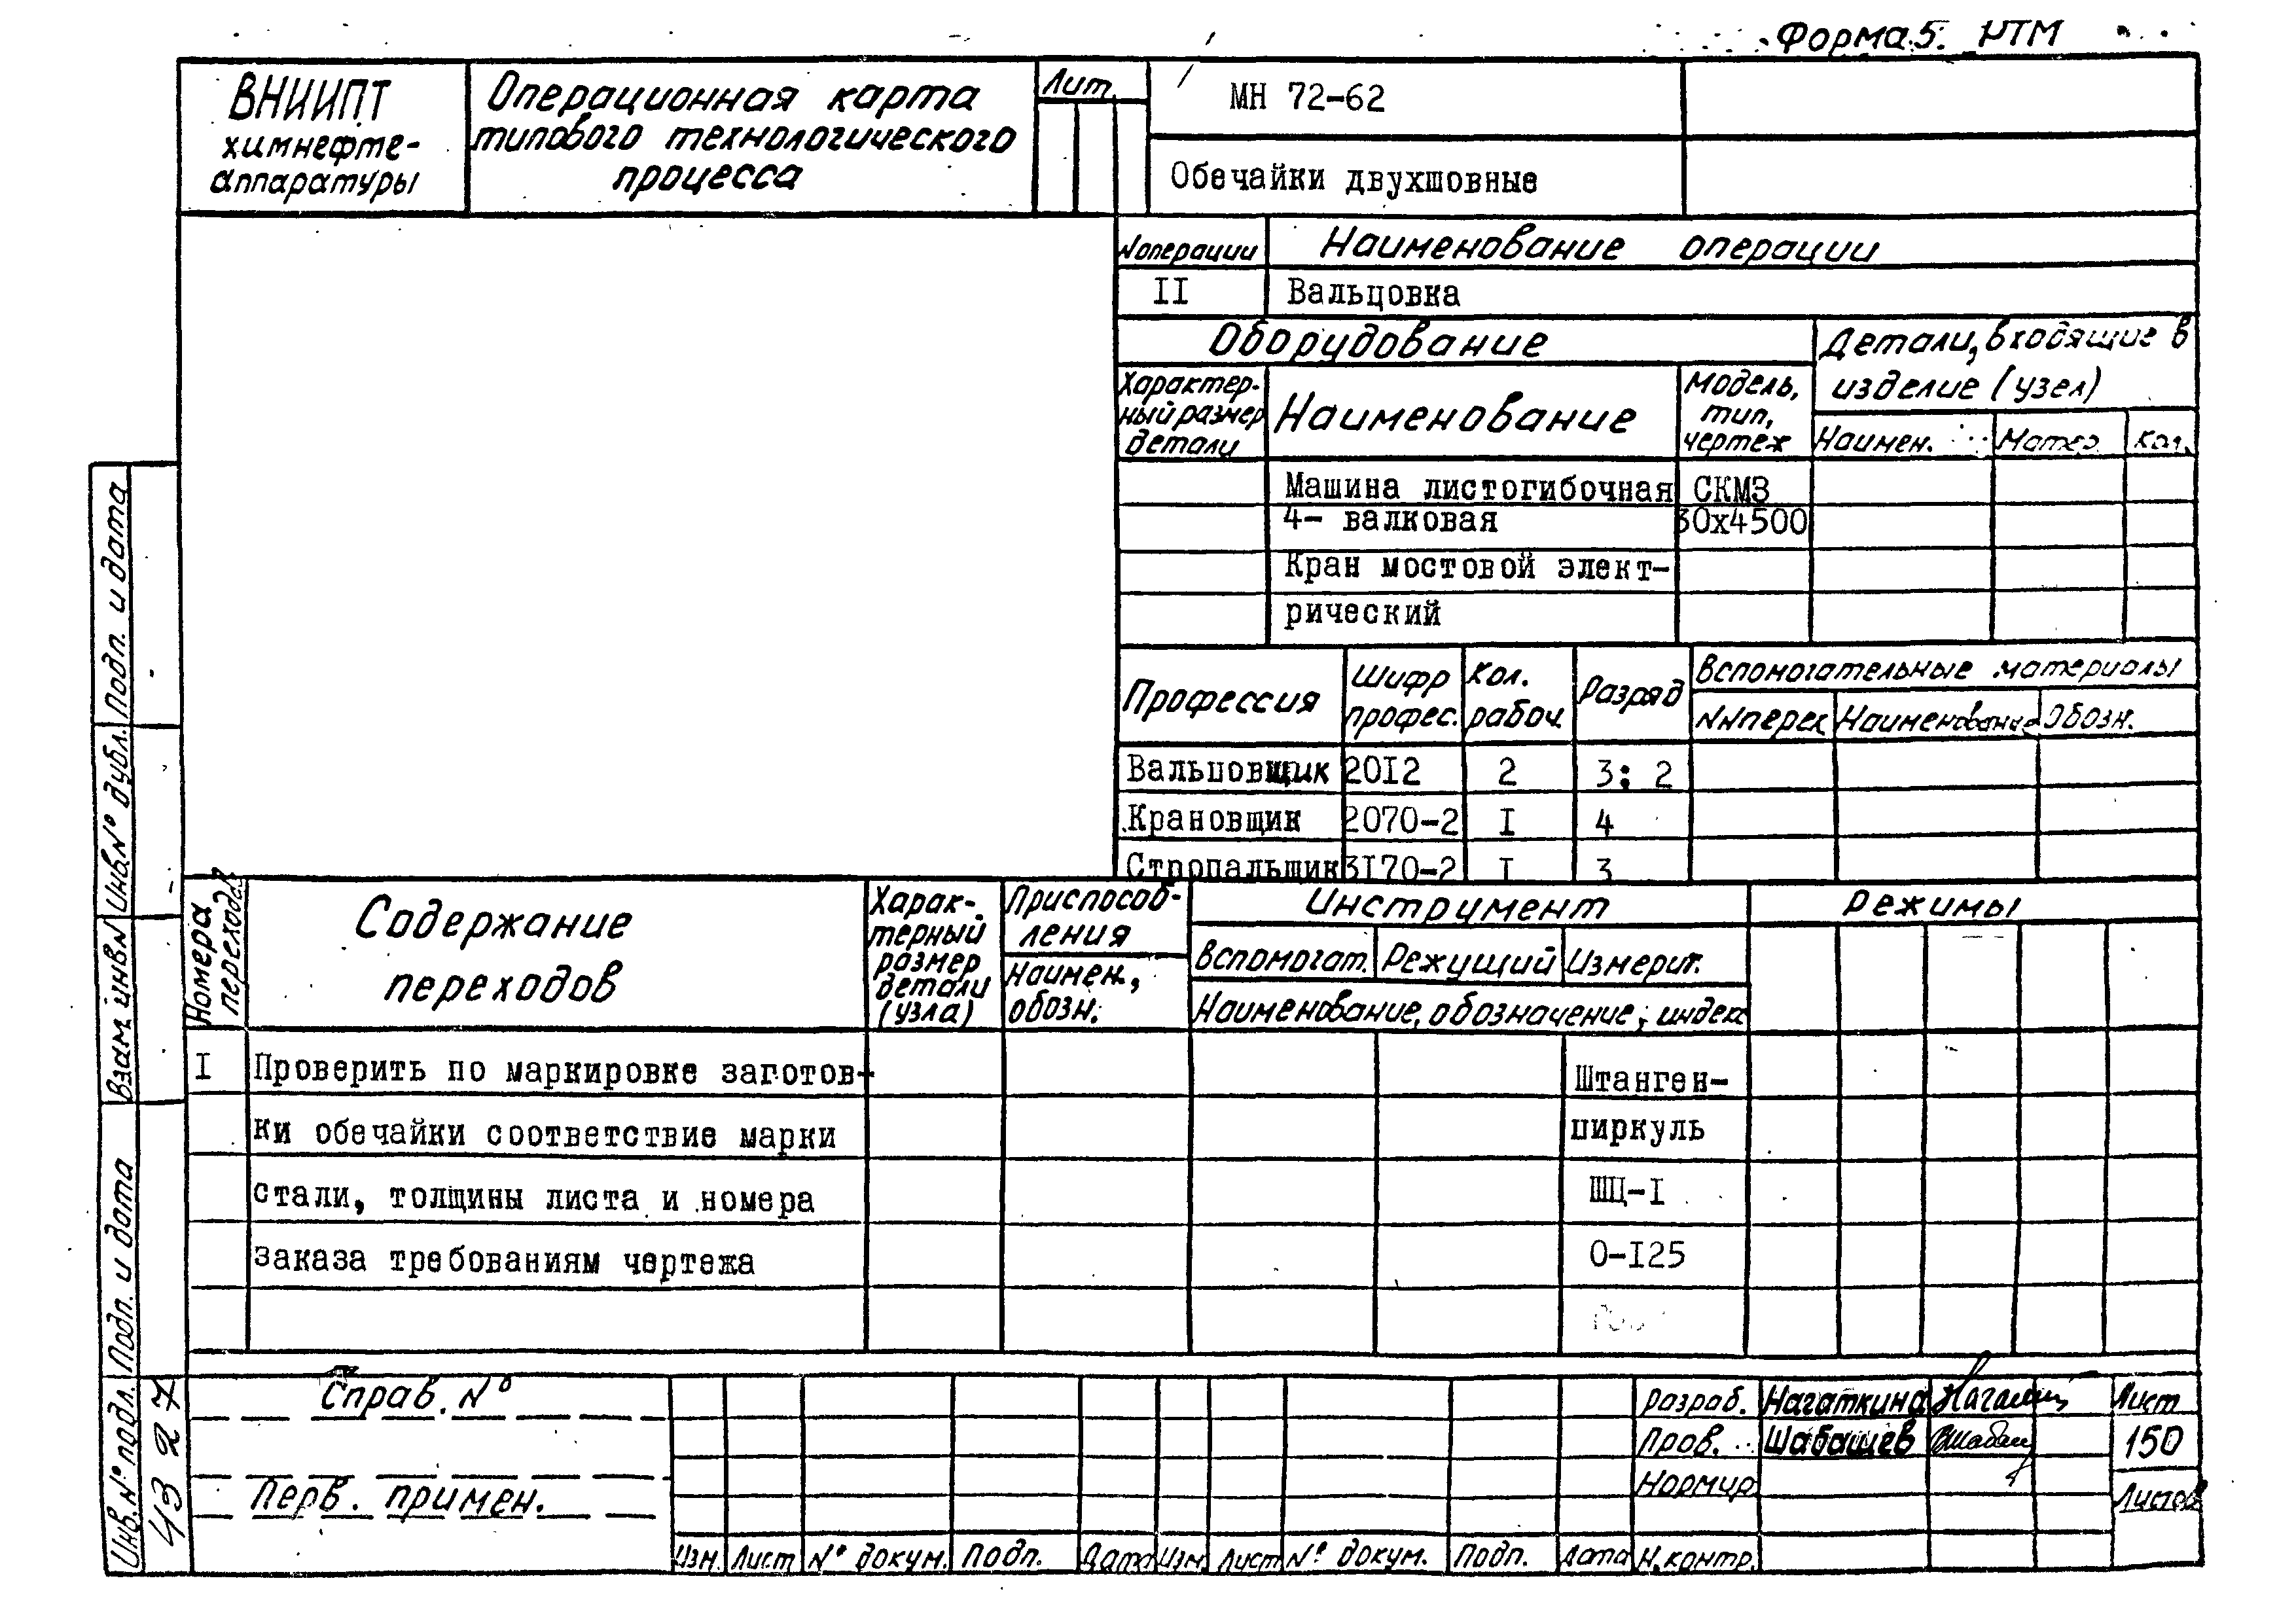 Форма 5. РТМ
ВНИИПТ
химнефте-
аппаратуры
Операционная карта
типового технологического
процесса
Лит.
МН 72-62
Обечайки двухшовные
№ операции
Наименование операции
II
Вальцовка
Оборудование
Детали, входящие в
изделие (узел)
Характер-
ный размер
детали
Наименование
Модель,
тип,
чертеж
Наимен.
Матер.
Кол.
Машина листогибочная
СКМЗ
4- валковая
30х4500
Кран мостовой элект-
рический
Профессия
Шифр
профес.
Кол.
рабоч.
Разряд
Вспомогательные материалы
№№ перех
Наименование
Обозн.
Вальцовщик
20I2
2
3: 2
Крановщик
2070-2
I
4
Стропальщик
3I70-2
I
3
Номера
переходов
Содержание
переходов
Харак-
терный
размер
детали
(узла)
Приспособ-
ления
Наимен.,
обозн.
Инструмент
Вспомогат.
Режущий
Измерит.
Наименование, обозначение, индекс
Режимы
I
Проверить по маркировке заготов-
ки обечайки соответствие марки
стали, толщины листа и номера
заказа требованиям чертежа
Штанген-
циркуль
ШЦ-I
0-I25
Подп. и дата
Инв. № дубл.
Взам. инв. №
Подп. и дата
Инв. № подл.
4327
Справ. №
Перв. примен.
Изм.
Лист
№ докум.
Подп.
Дата
Изм.
Лист
№ докум.
Подп.
Дата
Разраб.
Нагаткина
Пров.
Шабашев
Нормир.
Н. контр.
Лист
150
Листов